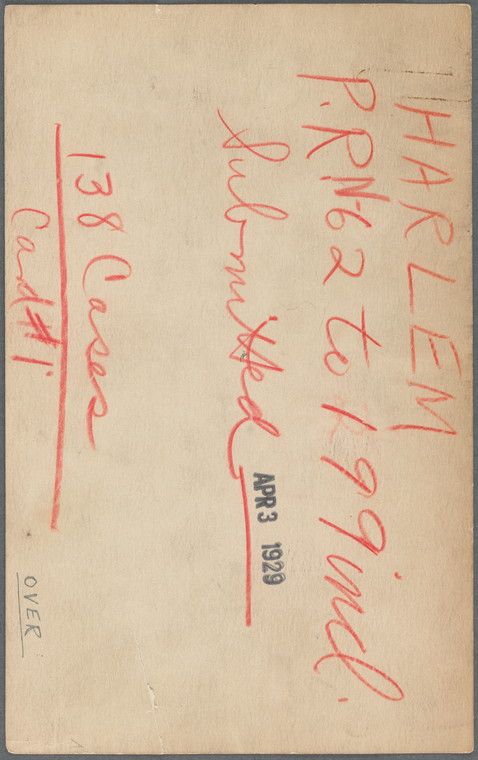 HARLEM
P.R. N-62 to 199 incl.
Submitted APR 3 1929
138 Cases
Card #1
OVER